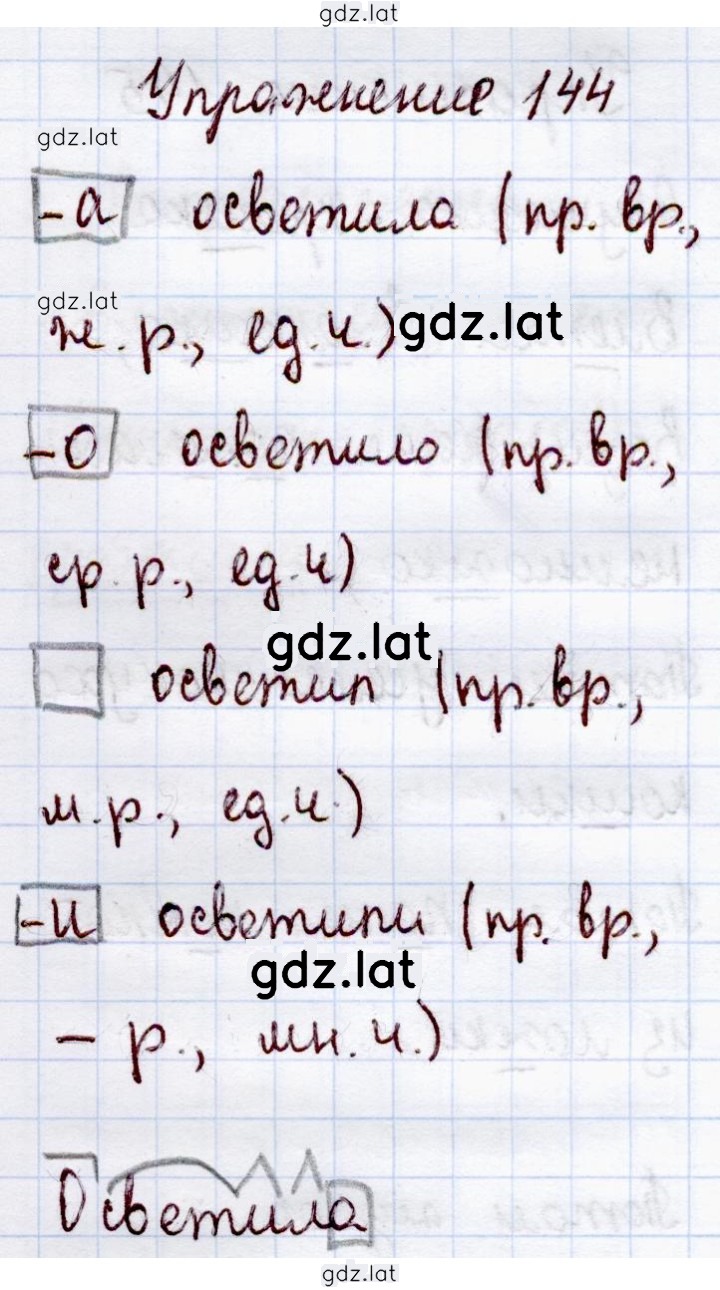 gdz.lat
Упражнение 144
gdz.lat
-а осветила (пр. вр.,
gdz.lat
ж. р., ед. ч.) gdz.lat
-о осветило (пр. вр.,
ср. р., ед. ч)
gdz.lat
осветил (пр. вр.,
м. р., ед. ч.)
-и осветили (пр. вр.,
gdz.lat
– р., мн. ч.)
Осветила
gdz.lat